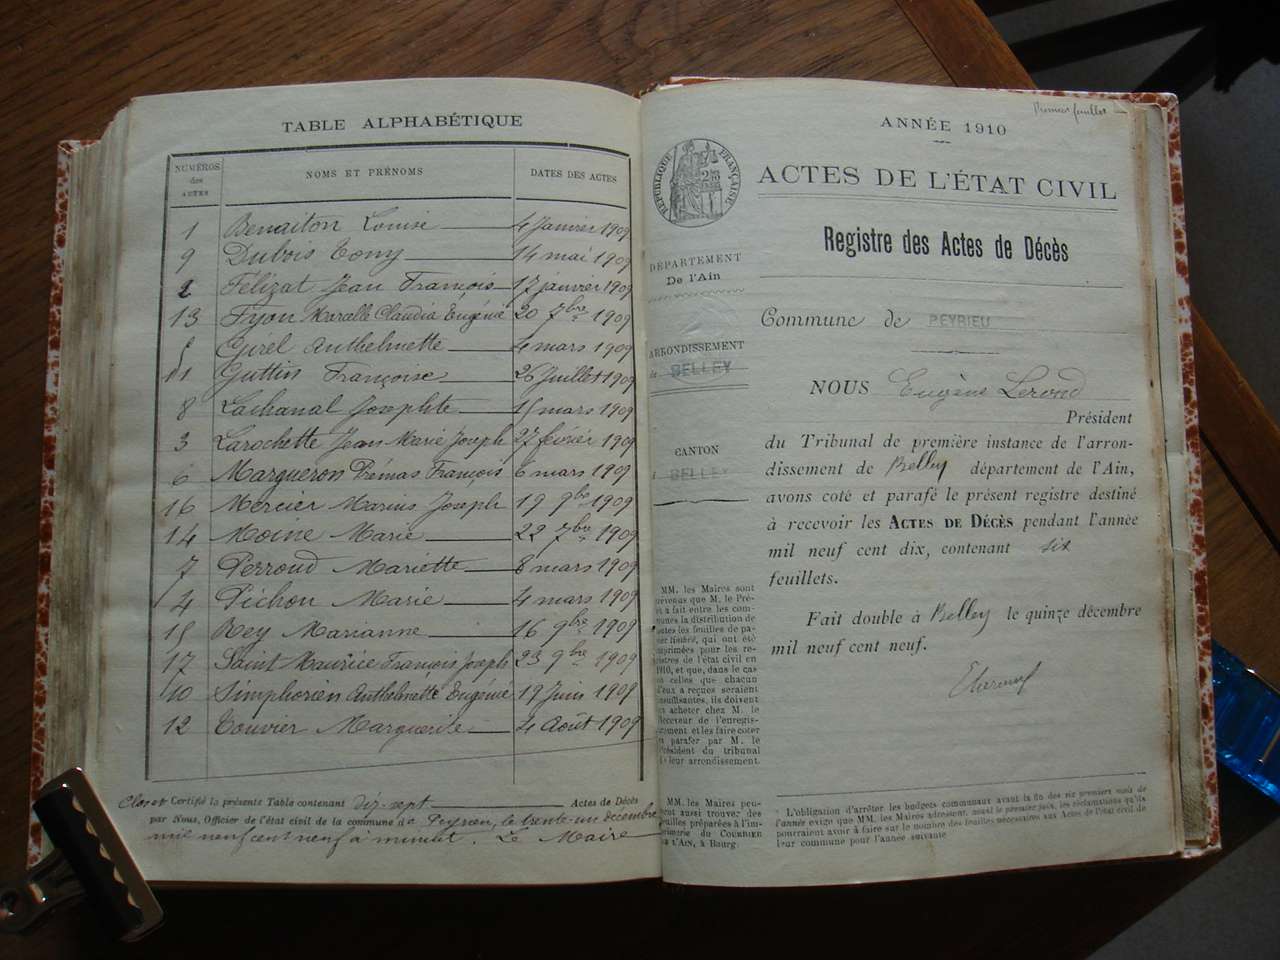 TABLE ALPHABÉTIQUE
NUMÉROS des ACTES NOMS ET PRÉNOMS DATES DES ACTES
1 Benaiton Louise 4 Janvier 1909
9 Dubois Tony 14 mai 1909
2 Félizat Jean François 17 janvier 1909
13 Fyon Claudia Eugénie 20 7bre 1909
5 Anthelmette 4 mars 1909
11 Guttin Françoise 26 Juillet 1909
8 Lachanal Josephte 15 mars 1909
3 Larochette Jean Marie Joseph 27 février 1909
6 Margueron François 6 mars 1909
16 Mercier Marius Joseph 19 9bre 1909
14 Moine Marie 22 7bre 1909
7 Perroud Mariette 8 mars 1909
4 Pichon Marie 4 mars 1909
15 Rey Marianne 16 9bre 1909
17 Saint Maurice François Joseph 23 9bre 1909
10 Simphorien Anthelmette Eugénie 19 Juin 1909
12 Touvier Marguerite 4 Août 1909
Clos et Certifié la présente Table contenant dix-sept Actes de Décès
par Nous, Officier de l'état civil de la commune de Peyrieu, le trente-un décembre
mil neuf cent neuf à minuit. Le Maire
Premier feuillet
ANNÉE 1910
RÉPUBLIQUE FRANÇAISE
ACTES DE L'ÉTAT CIVIL
Registre des Actes de Décès
DÉPARTEMENT
De l'Ain
Commune de PEYRIEU
ARRONDISSEMENT
de BELLEY
CANTON
BELLEY
NOUS Eugène Lerond
Président
du Tribunal de première instance de l'arron-
dissement de Belley département de l'Ain,
avons coté et parafé le présent registre destiné
à recevoir les ACTES DE DÉCÈS pendant l'année
mil neuf cent dix, contenant six
feuillets.
Fait double à Belley le quinze décembre
mil neuf cent neuf.
MM. les Maires sont
prévenus que M. le Pré-
fet a fait entre les com-
munes la distribution de
toutes les feuilles de pa-
pier timbré, qui ont été
imprimées pour les re-
gistres de l'état civil en
1910, et que, dans le cas
où celles que chacun
d'eux a reçues seraient
insuffisantes, ils doivent
en acheter chez M. le
Receveur de l'enregis-
trement et les faire coter
et parafer par M. le
Président du tribunal
de leur arrondissement.
MM. les Maires peu-
vent aussi trouver des
feuilles préparées à l'im-
primerie du COURRIER
DE L'AIN, à Bourg.
L'obligation d'arrêter les budgets communaux avant la fin des six premiers mois de
l'année exige que MM. les Maires adressent, avant le premier juin, les réclamations qu'ils
pourraient avoir à faire sur le nombre des feuilles nécessaires aux Actes de l'état civil de
leur commune pour l'année suivante